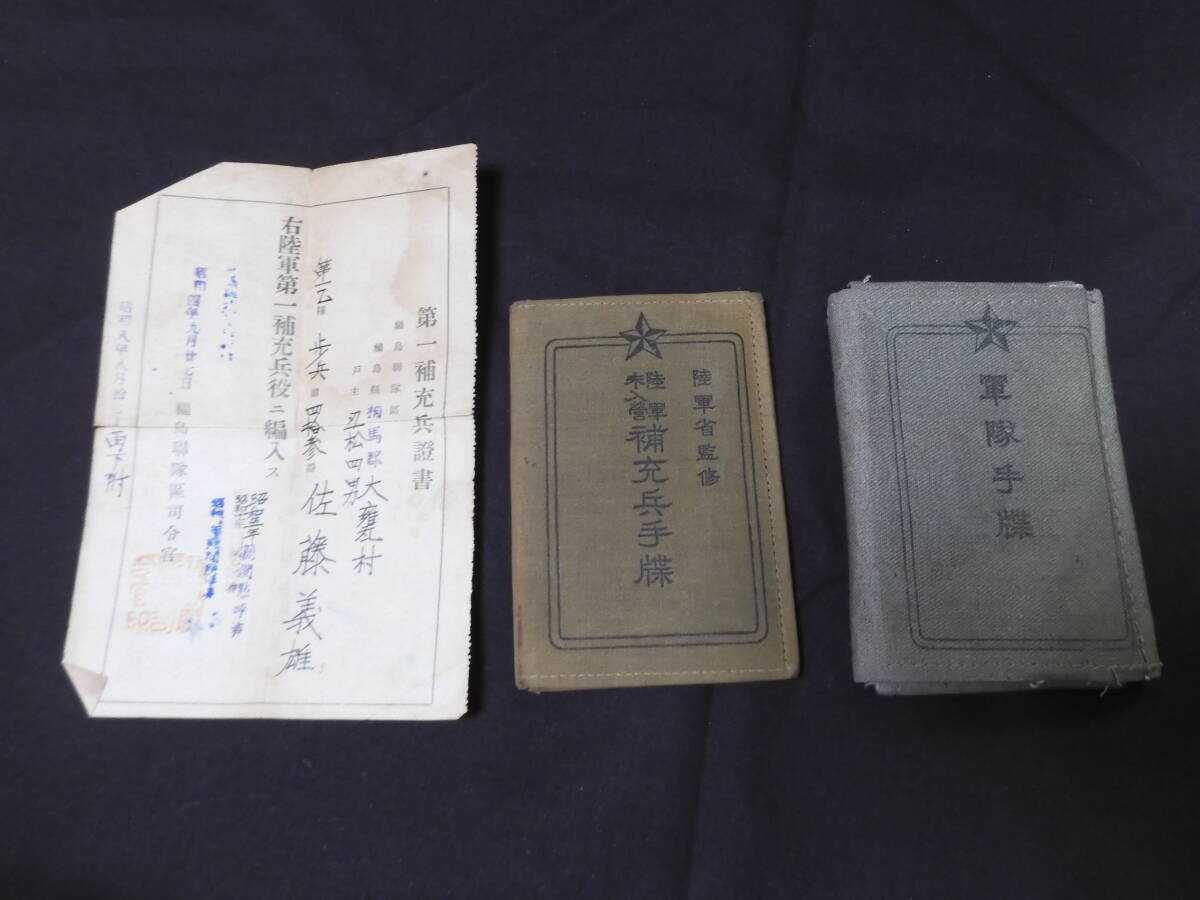 第一補充兵證書
福島聯隊區
福島縣相馬郡大甕村
戸主 丑松四男
第一乙種 歩兵 第四拾参番 佐藤義雄
右陸軍第一補充兵役ニ編入ス
昭和四年九月廿七日 福島聯隊區司令官
再下附
陸軍省監修
陸軍
未入營
補充兵手牒
軍隊手牒